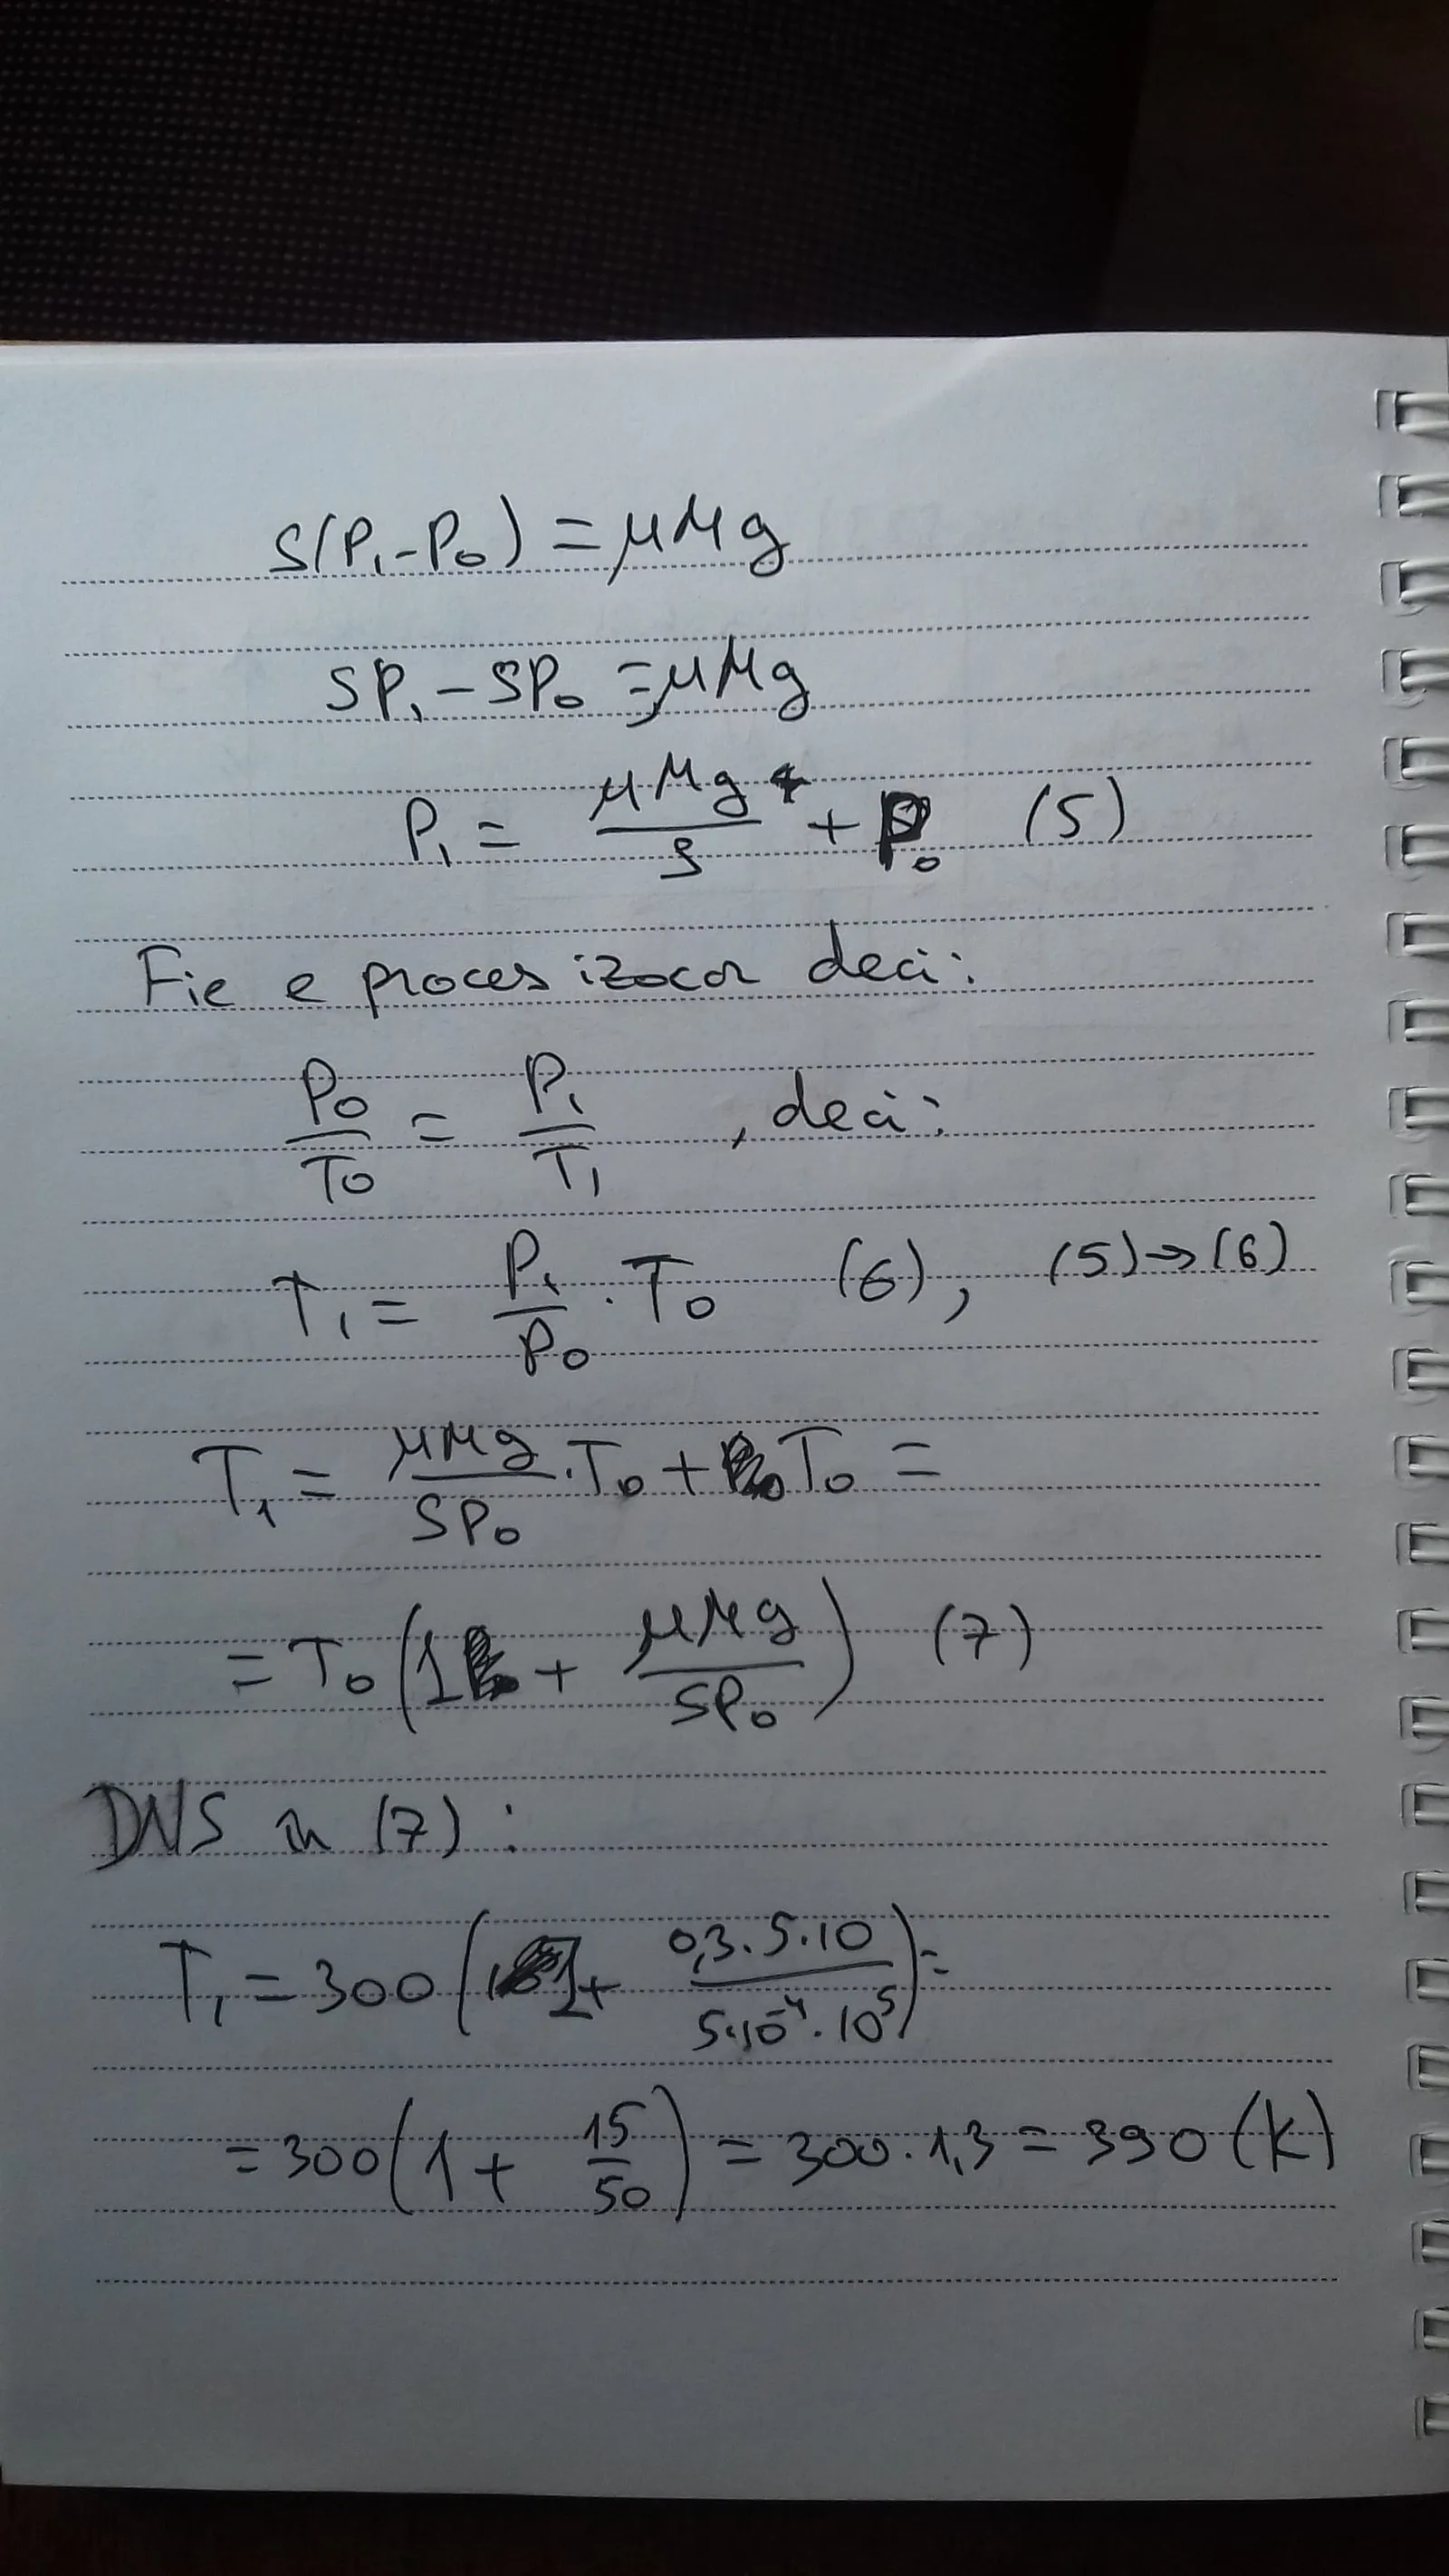 S(P₁-P₀) = μMg
SP₁ - SP₀ = μMg
P₁ = μMg/S + P₀ (5)
Fie e proces izocor deci:
P₀/T₀ = P₁/T₁ , deci:
T₁ = P₁/P₀ · T₀ (6), (5)→(6)
T₁ = μMg/SP₀ · T₀ + T₀ =
= T₀(1 + μMg/SP₀) (7)
DNS in (7) :
T₁ = 300(1 + 0,3·5·10/5·10⁻⁴·10⁵) =
= 300(1 + 15/50) = 300·1,3 = 390 (K)